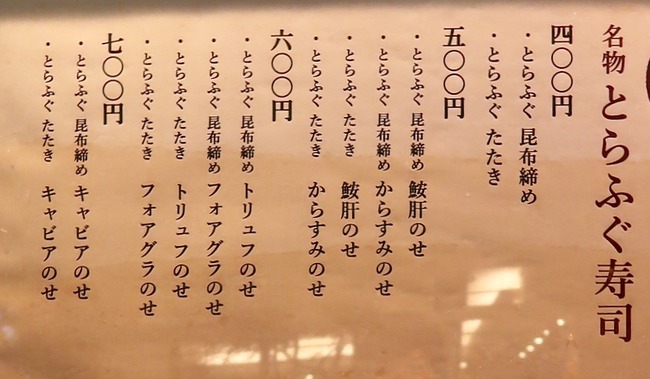 名物 とらふぐ寿司
四〇〇円
・とらふぐ 昆布締め
・とらふぐ たたき
五〇〇円
・とらふぐ 昆布締め 鮟肝のせ
・とらふぐ 昆布締め からすみのせ
・とらふぐ たたき 鮟肝のせ
・とらふぐ たたき からすみのせ
六〇〇円
・とらふぐ 昆布締め トリュフのせ
・とらふぐ 昆布締め フォアグラのせ
・とらふぐ たたき トリュフのせ
・とらふぐ たたき フォアグラのせ
七〇〇円
・とらふぐ 昆布締め キャビアのせ
・とらふぐ たたき キャビアのせ